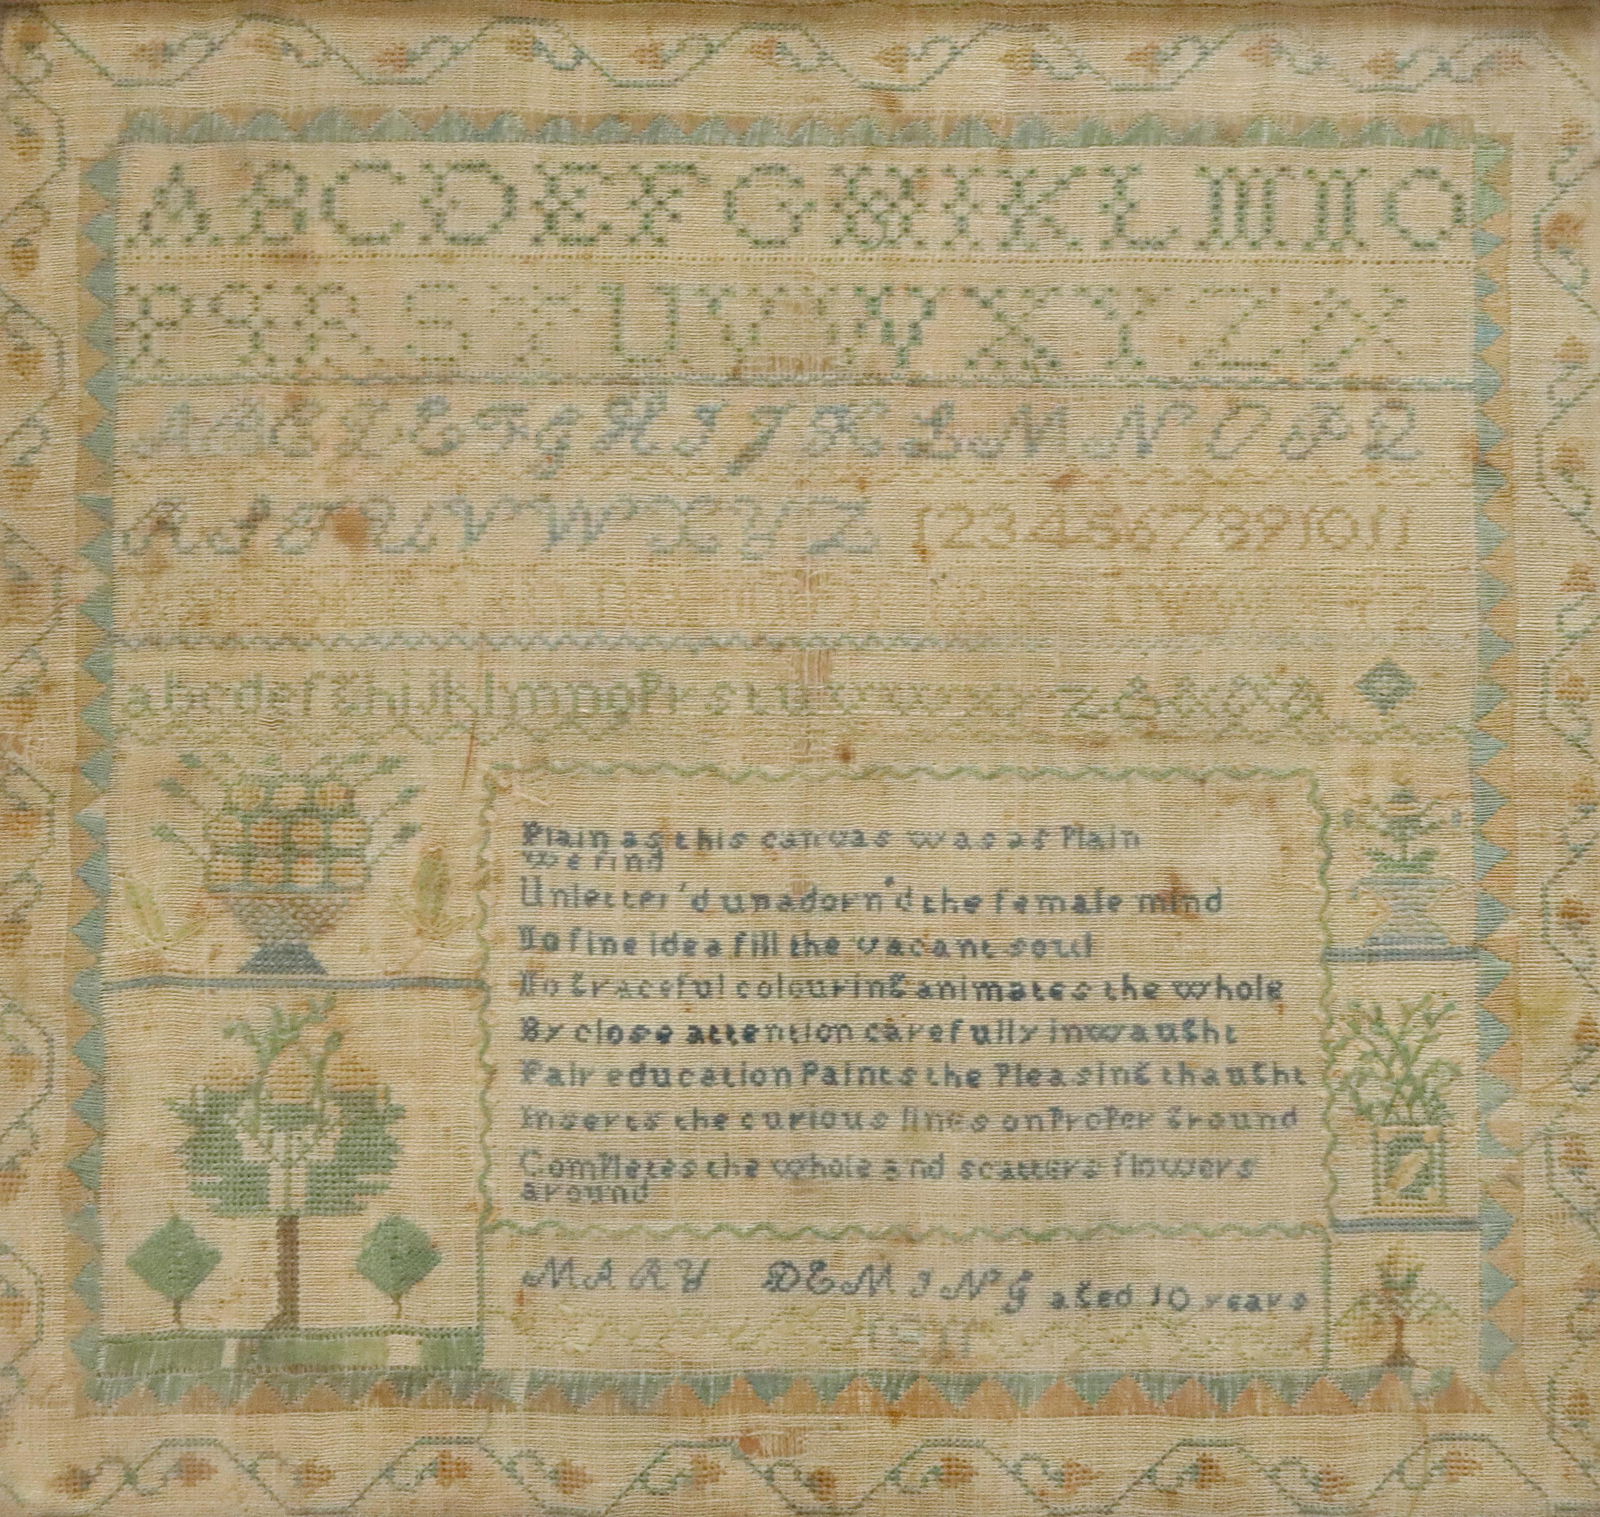 ABCDEFGHIKLMNO
PQRSTUVWXYZ&
ABCDEFGHIJKLMNOPQ
RSTUVWXYZ 1234567891011
abcdefghijklmnopqrstuvwxyz&&&&
Plain as this canvas was as Plain
we find
Unletter'd unadorn'd the female mind
No fine idea fill the vacant soul
No graceful colouring animates the whole
By close attention carefully inwaught
Fair education Paints the Pleasing thaught
Inserts the curious lines on Proper ground
Compleates the whole and scatters flowers
around
MARY DEMING aged 10 years
1811